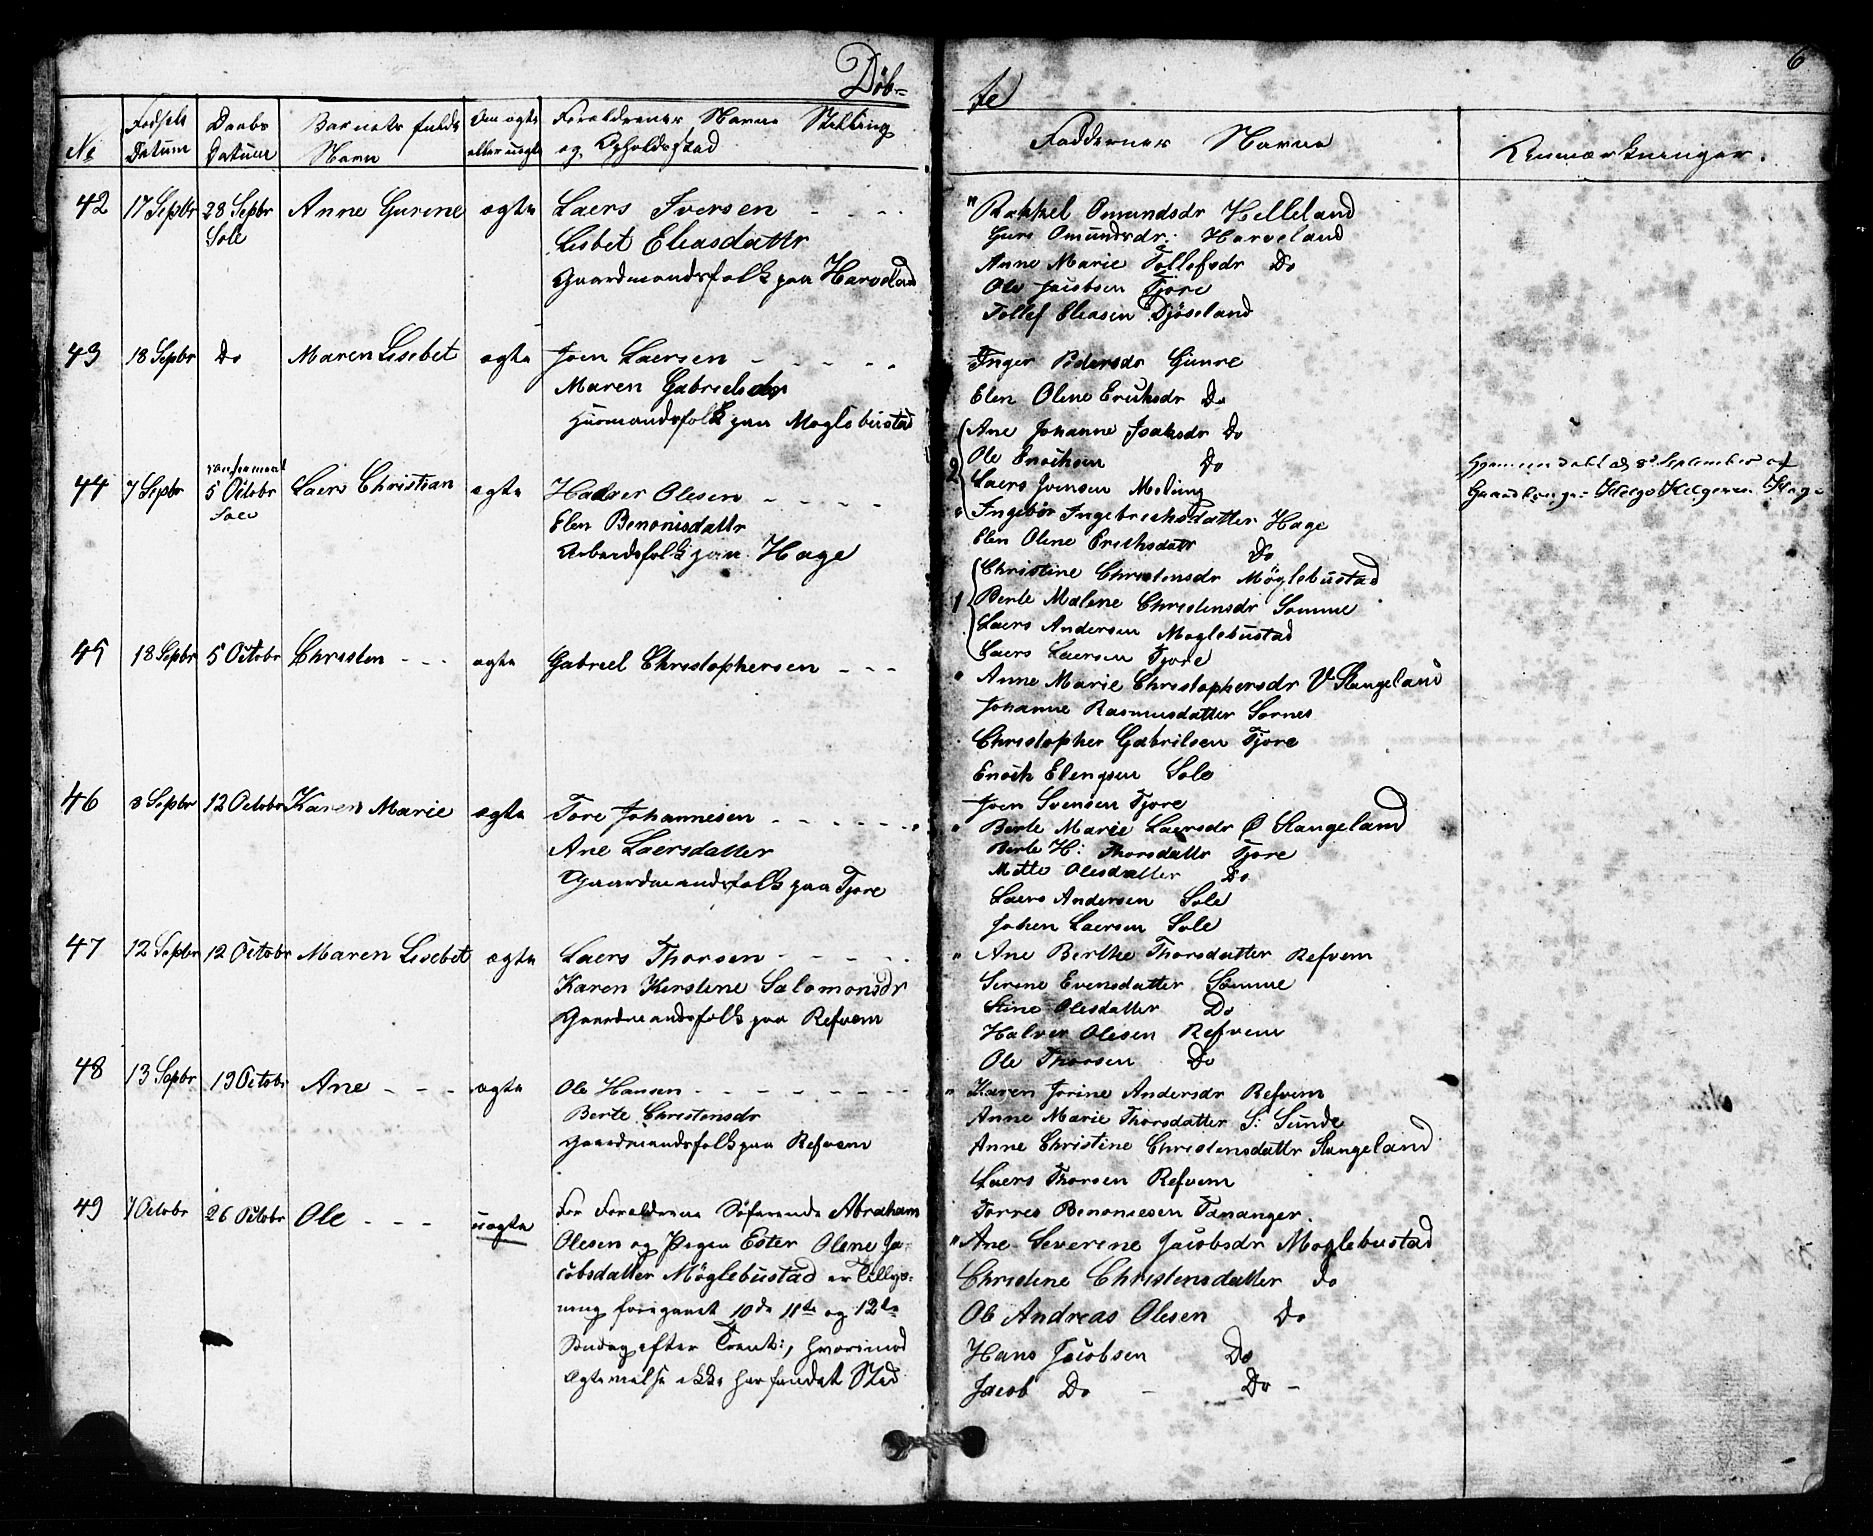 6
Døb-
te
No
Fødsels Datum
Daabs Datum
Barnets fulde Navn
Om ægte eller uægte
Forældrenes Navne Stilling
og Opholdsstad
Faddernes Navne
Anmærkninger.
42 17 Sepbr 28 Sepbr Anne Gurine ægte Laers Iversen - - - -
Sole
Lisbet Eliasdattr
Gaardmandsfolk paa Harveland
" Rakkel Omundsdr Helleland
Guro Omundsdr: Harveland
Anne Marie Tollefsdr Do
Ole Jacobsen Tjore
Tollef Eliasen Djøseland
43 18 Sepbr Do Maren Lisebet ægte Joen Laersen - - - -
Maren Gabrielsdr
Huusmandsfolk paa Moglebustad
Inger Pedersdr Gimre
Elen Oline Eriksdr Do
Ane Johanne Isaksdr Do
2 Ole Enochsen Do
Laers Joensen Meling
44 7 Sepbr 5 Octobr Laers Christian ægte Halver Olesen - - - -
Sole
Elen Benonisdattr
Arbeidsfolk paa Hage
" Ingebor Ingebrechsdatter Hage
Elen Oline Erichsdatr Do
Christine Christensdr Møglebustad
1 Berte Malene Christensdr Somme
Laers Andersen Moglebustad
Laers Laersen Tjore
Hjemmedøbt d 8de September af
45 18 Sepbr 5 Octobr Christen - - - ægte Gabriel Christophersen - - -
" Anne Marie Christophersdr V Stangeland
Johanne Rasmusdatter Sørnes
Christopher Gabrilsen Tjore
Enoch Elingsen Sole
Joen Svensen Tjore
46 3 Sepbr 12 Octobr Karen Marie ægte Tore Johannesen - - - - - -
Ane Laersdatter
Gaardmandsfolk paa Tjore
" Berte Marie Laersdr Ø Stangeland
Berte H: Thorsdattr Tjore
Mette Olesdatter Do
Laers Andersen Sole
Johen Laersen Sole
47 12 Sepbr 12 Octobr Maren Lisebet ægte Laers Thorsen - - - - -
Karen Kirstine Salomonsdr
Gaardmandsfolk paa Refvem
" Ane Berthe Thorsdatter Refvem
Serine Evensdatter Sømme
Stine Olesdatter Do
Halver Olesen Refvem
Ole Thorsen Do
48 13 Sepbr 19 Octobr Ane - - - ægte Ole Hansen - - - - - - -
Berte Christensdr
Gaardmandsfolk paa Refvem
" Karen Jorine Andersdr Refvem
Anne Marie Thorsdatter S: Sunde
Anne Christine Christensdattr Stangeland
Laers Thorsen Refvem
Torres Benoniesen Tananger.
49 7 Octobr 26 Octobr Ole - - - uægte For Forældrene Søfarende Abraham
Olesen og Pigen Ester Olene Ja-
cobsdatter Møglebustad er Tillys-
ning foregaaet 10de 11te og 12te
Søndag efter Trenit:, hvorimod
Ægtevielse ikke har fundet Sted
" Ane Severine Jacobsdr Moglebustad
Christine Christensdatter do
Ole Andreas Olesen Do
Hans Jacobsen Do
Jacob Do - Do -